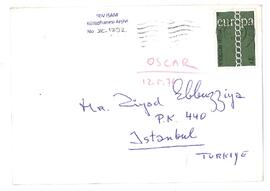 TDV İSAM
Kütüphanesi Arşivi
No 2E.1792
europa
OSCAR
Mr. Ziyad Ebuzziya
P.K. 440
Istanbul
TURKIYE